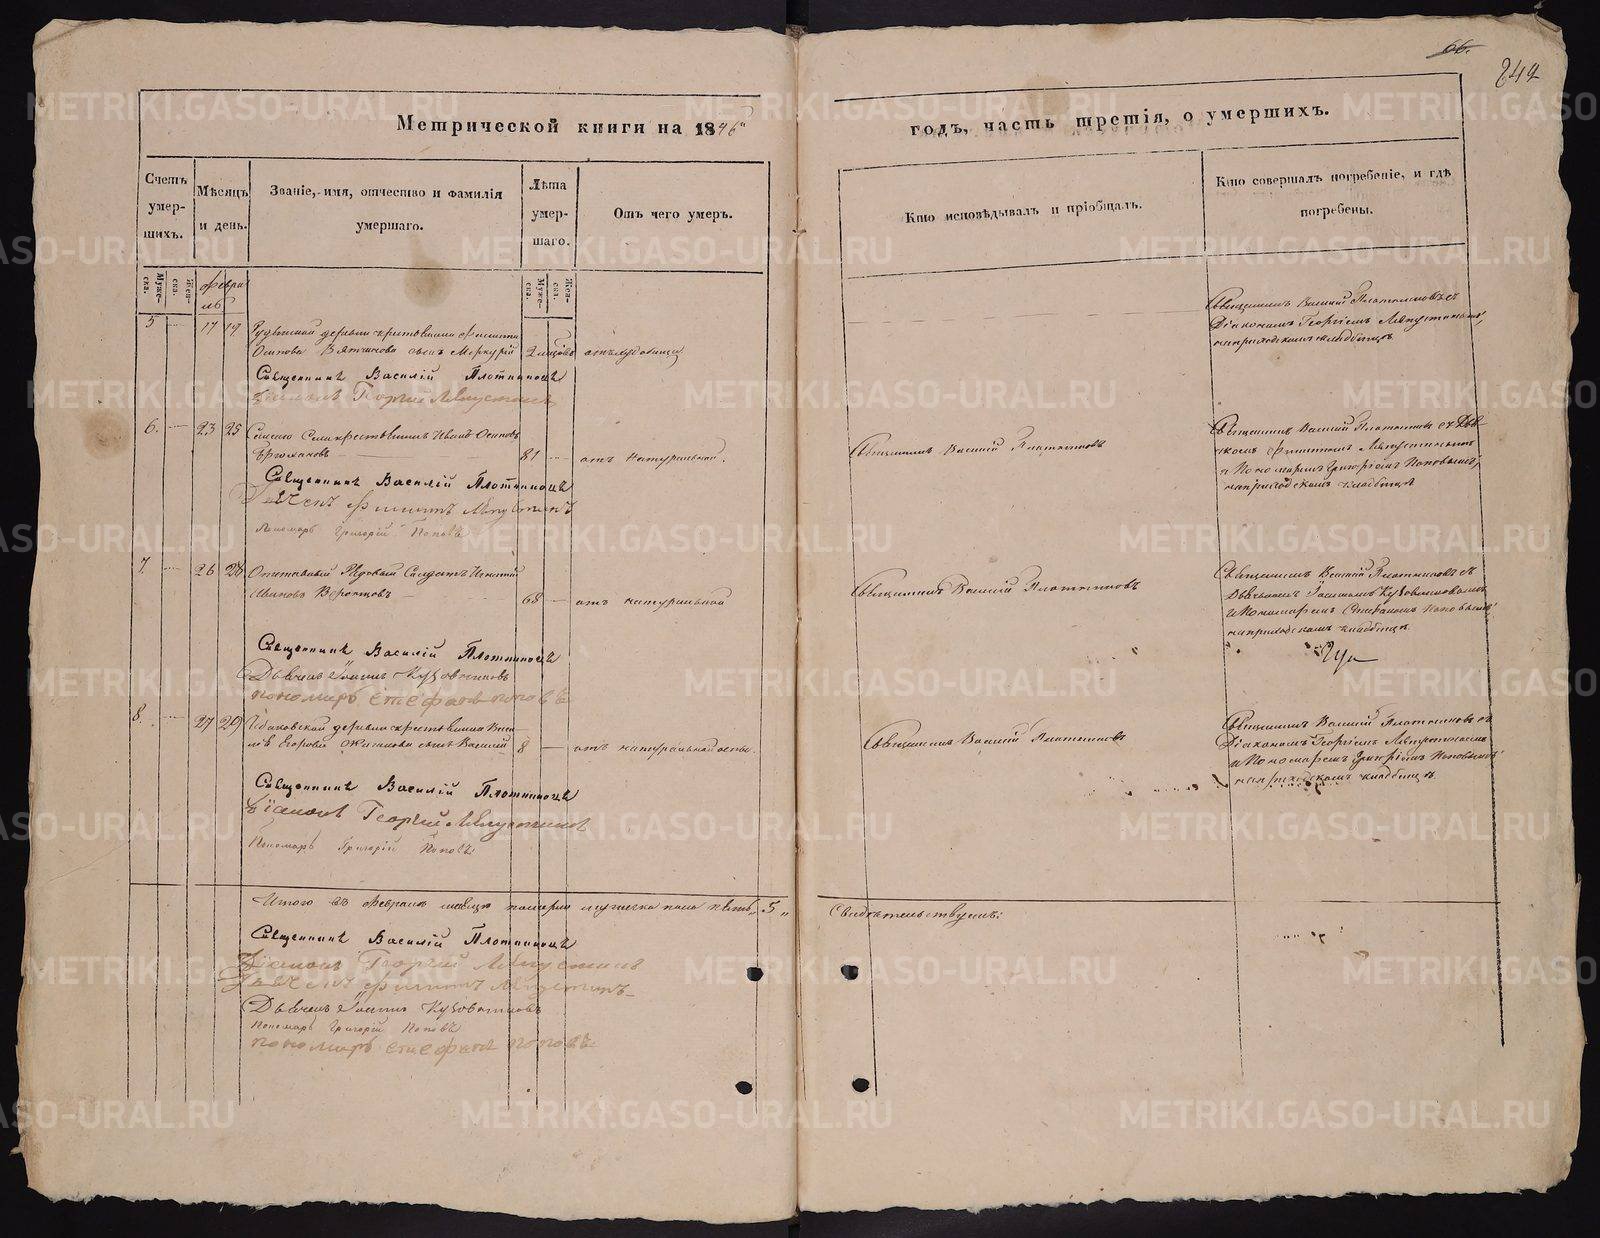 66.
242
Метрической книги на 1846й
годъ, часть третія, о умершихъ.
Счетъ умер-шихъ.
Мѣсяцъ и день.
Званіе, имя, отчество и фамилія умершаго.
Лѣта умер-шаго.
Отъ чего умеръ.
Кто исповѣдывалъ и пріобщалъ.
Кто совершалъ погребеніе, и гдѣ погребены.
Муже-ска.
Жен-ска.
Февра
ль
Муже-ска.
Жен-ска.
5 17 19 деревни крестьянина Филиппа
Осипова Вятчинова сынъ Меркурій 2 отъ
Священникъ Василій Плотниковъ
Діаконъ Георгій
Священникъ Василій Плотниковъ съ
Діакономъ Георгіемъ
на приходскомъ кладбищѣ
6. 23 25 Села крестьянинъ Иванъ Осиповъ
81 отъ натуральной.
Священникъ Василій Плотниковъ
Дьячекъ Филиппъ
Пономарь Григорій Поповъ
Священникъ Василій Плотниковъ
Священникъ Василій Плотниковъ съ Дья-
чкомъ Филиппомъ
и Пономаремъ Григоріемъ Поповымъ,
на приходскомъ кладбищѣ
7. 26 28 Отставный Рядовый Солдатъ Игнатій
Ивановъ Воронцовъ 68 отъ натуральной
Священникъ Василій Плотниковъ
Дьячекъ Іоаннъ Кузовниковъ
пономарь Стефанъ поповъ
Священникъ Василій Плотниковъ
Священникъ Василій Плотниковъ съ
Дьячкомъ Іоанномъ Кузовниковымъ
и Пономаремъ Стефаномъ Поповымъ,
на приходскомъ кладбищѣ
8. 27 29 деревни крестьянина Васи-
лія Егорова сынъ Василій 8 отъ натуральной оспы.
Священникъ Василій Плотниковъ
Діаконъ Георгій
Пономарь Григорій Поповъ
Священникъ Василій Плотниковъ
Священникъ Василій Плотниковъ съ
Діакономъ Георгіемъ
и Пономаремъ Григоріемъ Поповымъ
на приходскомъ кладбищѣ
Итого въ Февралѣ мѣсяцѣ померло мужеска пола пять „ 5 „
Свидѣтельствуемъ:
Священникъ Василій Плотниковъ
Діаконъ Георгій
Дьячекъ Филиппъ
Дьячекъ Іоаннъ Кузовниковъ
Пономарь Григорій Поповъ
пономарь стефанъ поповъ
METRIKI.GASO-URAL.RU